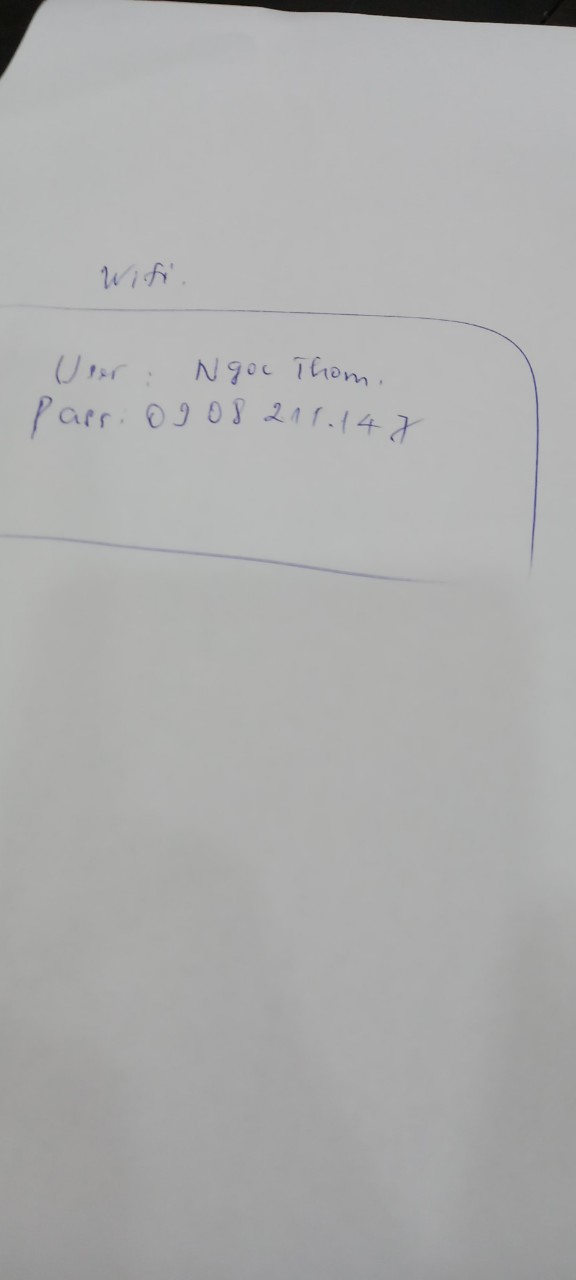 Wifi.
User : Ngoc Thom.
Pass. 0908 211.147